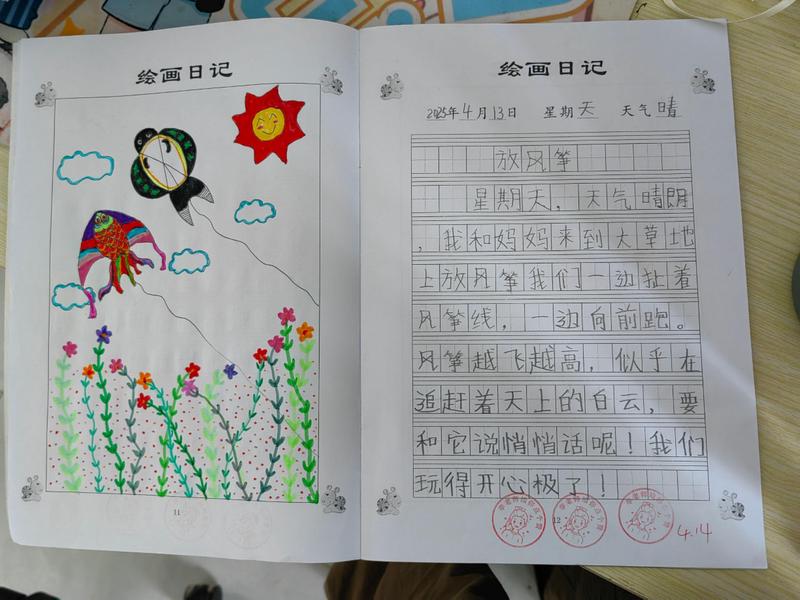 绘画日记
11
绘画日记
2025年4月13日 星期天 天气晴
放风筝
星期天，天气晴朗
，我和妈妈来到大草地
上放风筝我们一边扯着
风筝线，一边向前跑。
风筝越飞越高，似乎在
追赶着天上的白云，要
和它说悄悄话呢！我们
玩得开心极了！
12
4.14